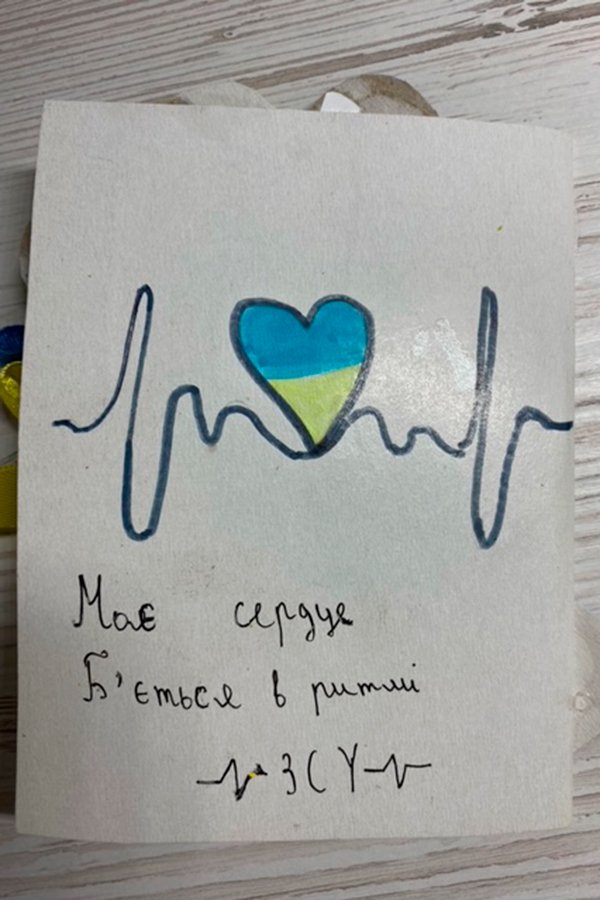 Має сердце
Б'ється в ритмі
ЗСУ